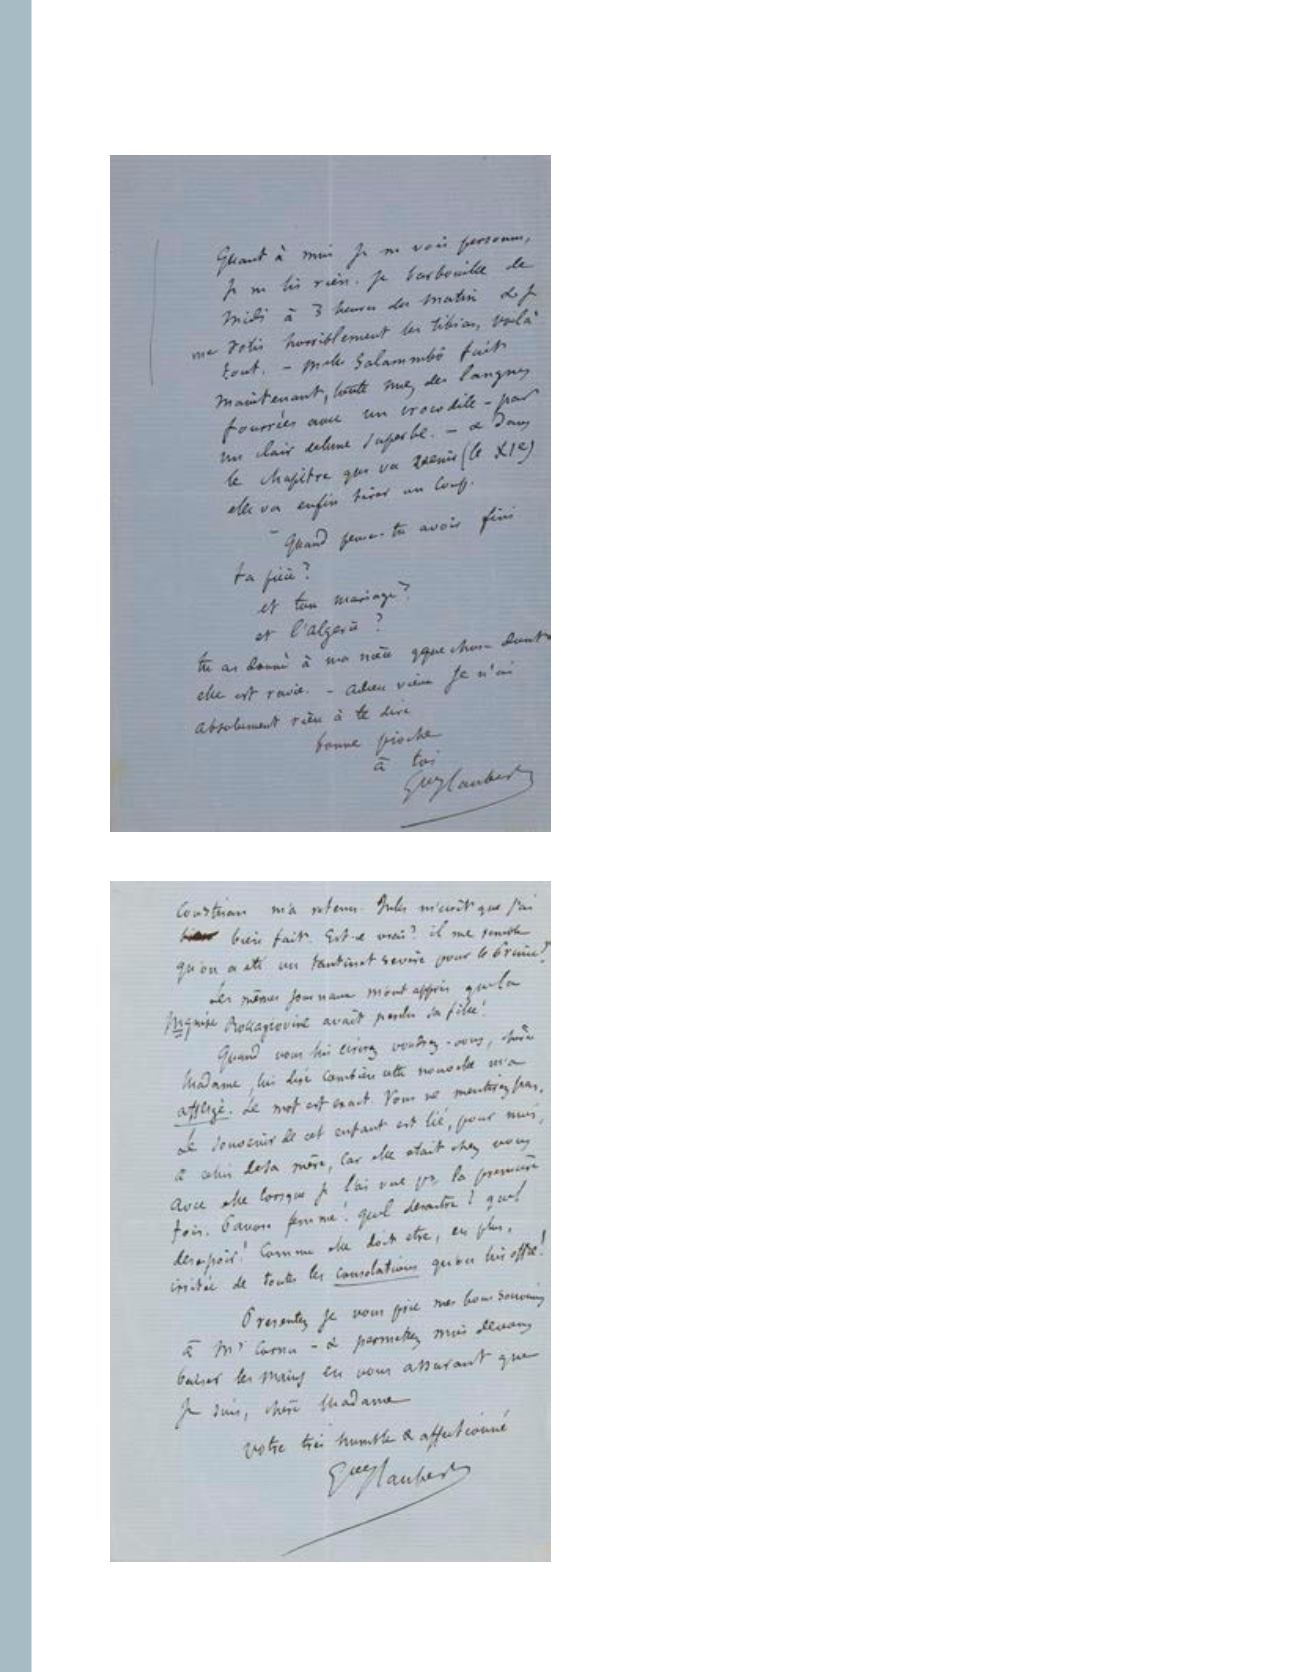 Quant à moi je ne vois personne,
je ne lis rien. je barbouille de
midi à 3 heures du matin & je
me rotis horriblement les tibias, voilà
tout. – Melle Salammbô fait
maintenant, toute nue, des langues
fourrées avec un crocodile – par
un clair de lune superbe. – & dans
le chapitre qui va venir (le XIe)
elle va enfin tirer un coup.
– Quand penses-tu avoir fini
ta pièce?
et ton mariage?
et l'algerie?
tu as donné à ma nièce qque chose dont
elle est ravie. – adieu vieux je n'ai
absolument rien à te dire
bonne pioche
à toi
Gve Flaubert
m'a retenu. Jules m'écrit que j'ai
bien fait. Est-ce vrai? il me semble
qu'on a été un tantinet sevère pour le Prince?
Les mêmes journaux m'ont appris que la
Mquise avait perdu sa fille!
Quand vous lui écrirez voudrez-vous, chère
Madame, lui dire combien cette nouvelle m'a
affligé. Le mot est exact. Vous ne mentirez pas.
Le souvenir de cet enfant est lié, pour moi,
à celui de sa mère, car elle était chez vous
avec elle lorsque je l'ai vue pr la première
fois. Pauvre femme! quel desastre! quel
desespoir! Comme elle doit etre, en plus,
irritée de toutes les consolations qu'on lui offre!
Presentez je vous prie mes bons souvenirs
à Mr Cornu – & permettez moi de vous
baiser les mains en vous assurant que
je suis, chère Madame
votre très humble & affectionné
Gve Flaubert